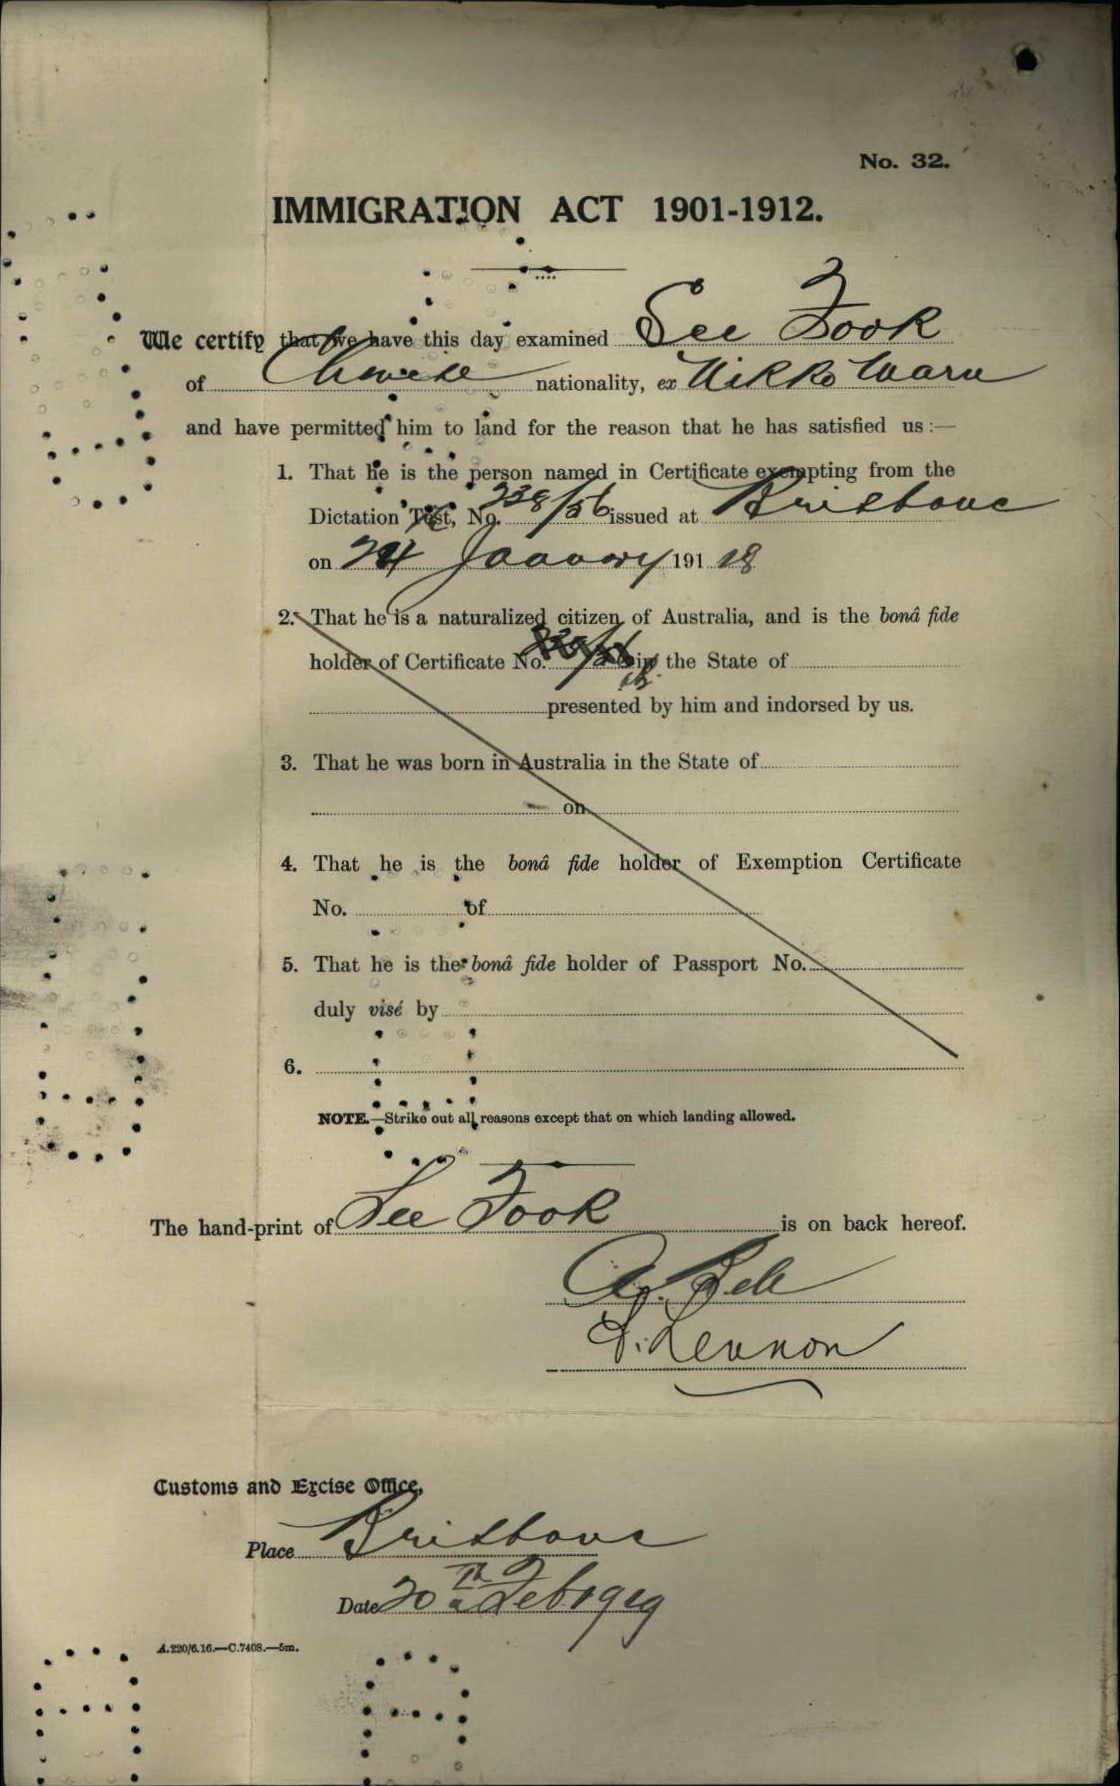 No. 32.
IMMIGRATION ACT 1901-1912.
We certify that we have this day examined See Fook
of Chinese nationality, ex Nikko Maru
and have permitted him to land for the reason that he has satisfied us :—
1. That he is the person named in Certificate exempting from the
Dictation Test, No. 238/56 issued at Brisbane
on 24 January 191 18
2. That he is a naturalized citizen of Australia, and is the bonâ fide
holder of Certificate No. 238/56 in the State of
presented by him and indorsed by us.
3. That he was born in Australia in the State of
on
4. That he is the bonâ fide holder of Exemption Certificate
No. of
5. That he is the bonâ fide holder of Passport No.
duly visé by
6.
NOTE.—Strike out all reasons except that on which landing allowed.
The hand-print of See Fook is on back hereof.
A. Bell
D. Lennon
Customs and Excise Office,
Place Brisbane
Date 20th Feb 1919
A.220/6.16.—C.7408.—5m.